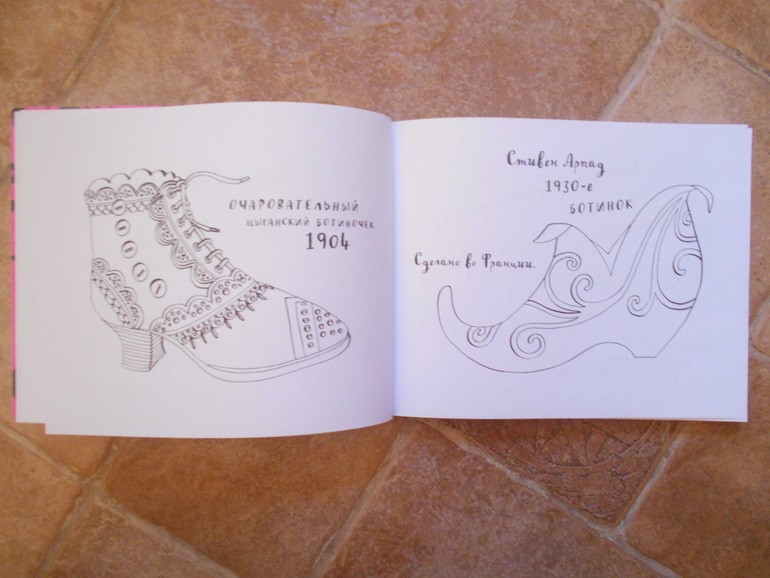 ОЧАРОВАТЕЛЬНЫЙ
ЦЫГАНСКИЙ БОТИНОЧЕК
1904
Стивен Арпад
1930-е
БОТИНОК
Сделано во Франции.